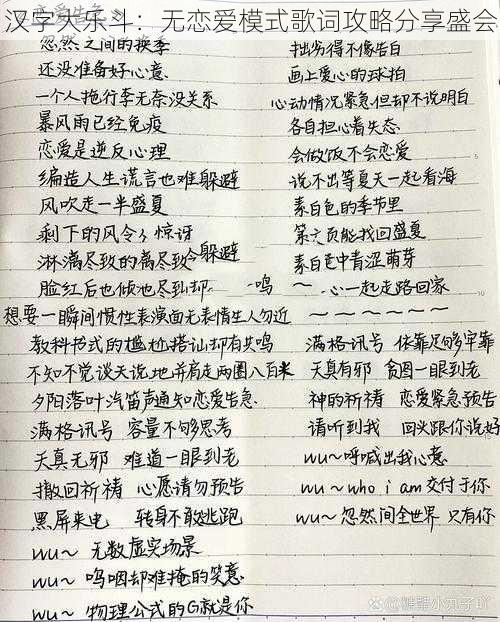 汉字大乐斗：无恋爱模式歌词攻略分享盛会
忽然之间的换季
还没准备好心意
一个人拖行李无奈没关系
暴风雨已经免疫
恋爱是逆反心理
编造人生谎言也难躲避
风吹走一半盛夏
剩下的风令人惊讶
淋漓尽致的离尽致令躲避
脸红后也倾池尽到却 呜
想要一瞬间惯性表演面无表情生人勿近
教科书式的尴尬搭讪却有共鸣
不知不觉谈天说地并肩走两圈八百米
夕阳落叶汽笛声通知恋爱告急
满格讯号 容量不够思考
天真无邪 难道一眼到老
撤回祈祷 心愿请勿预告
黑屏来电 转身不敢逃跑
wu~ 无数虚实场景
wu~ 呜咽却难掩的笑意
wu~ 物理公式的G就是你
拙劣得不像告白
画上爱心的球拍
心动情况紧急但却不说明白
各自担心着失态
会做饭不会恋爱
说不出等夏天一起看海
素白色的季节里
第六页能找回盛夏
素白色中青涩萌芽
~ 心一起走路回家
~~~~~~
满格讯号 依靠足够牢靠
天真有邪 贪图一眼到老
神的祈祷 恋爱紧急预告
请听到我 回头跟你说好
wu~呼喊出我心意
wu~who i am 交付于你
wu~忽然间全世界 只有你